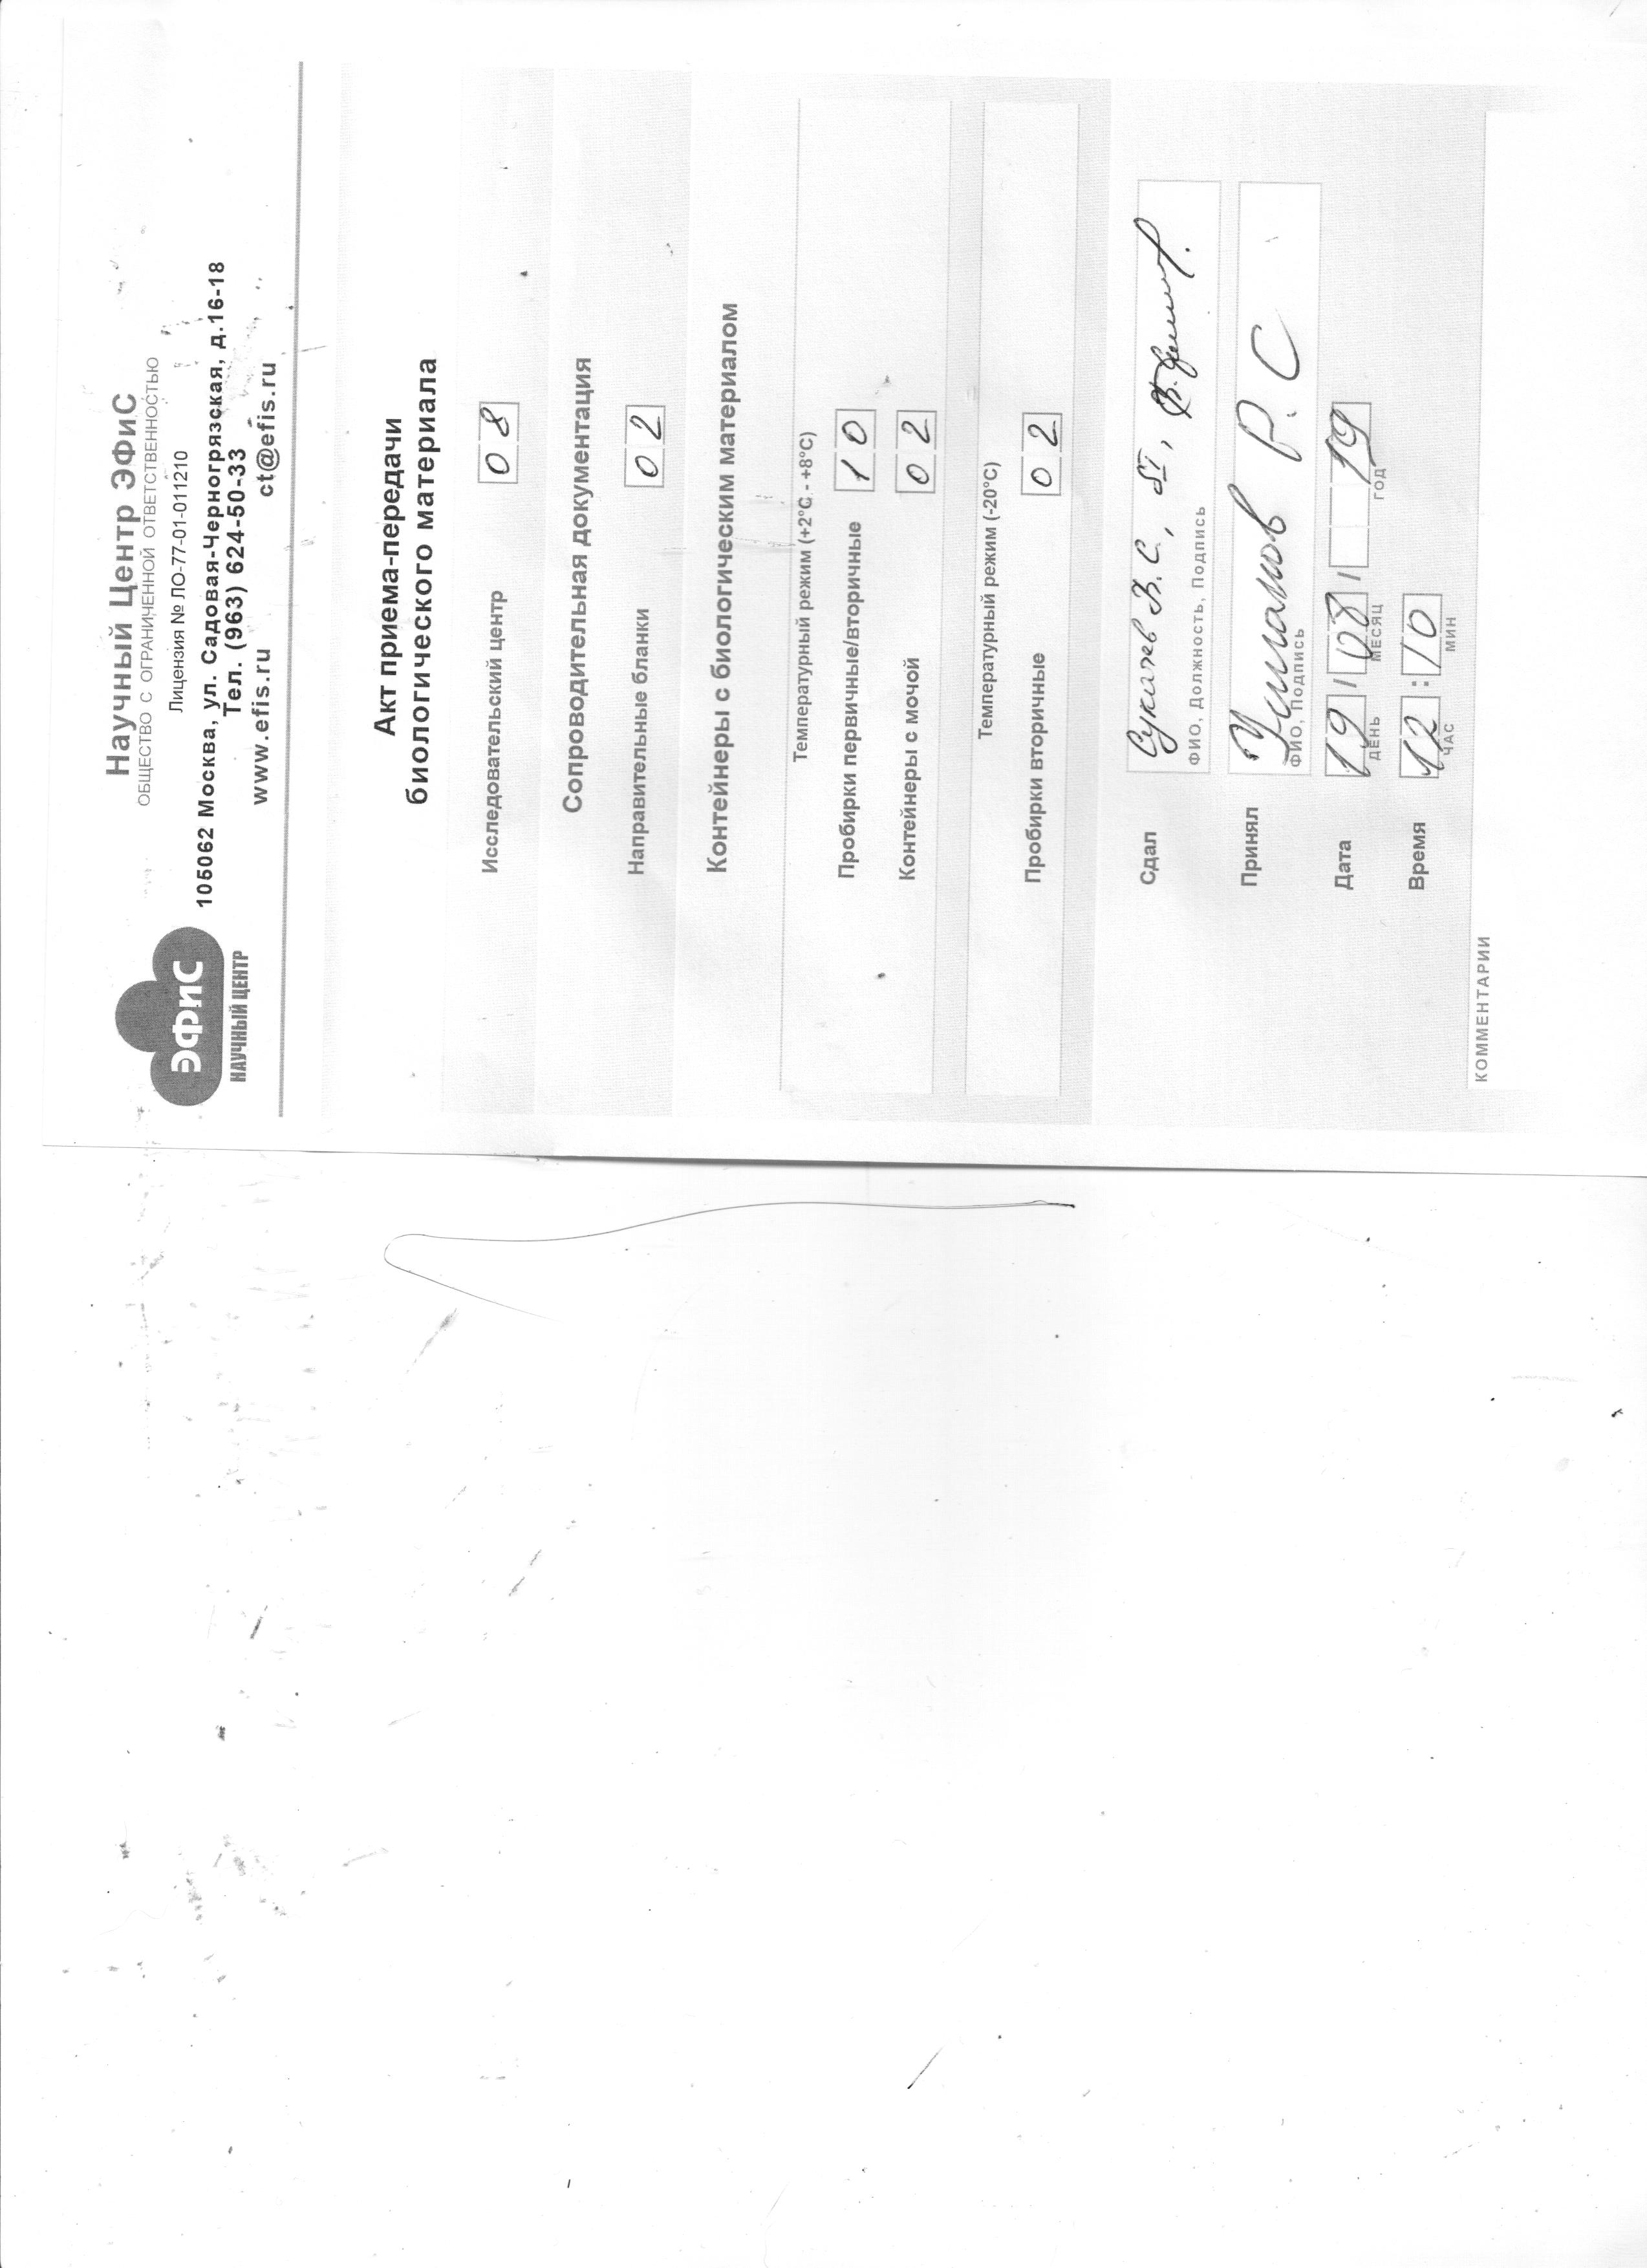 ЭФиС
НАУЧНЫЙ ЦЕНТР
Научный Центр ЭФиС
ОБЩЕСТВО С ОГРАНИЧЕННОЙ ОТВЕТСТВЕННОСТЬЮ
Лицензия № ЛО-77-01-011210
105062 Москва, ул. Садовая-Черногрязская, д.16-18
Тел. (963) 624-50-33
www.efis.ru ct@efis.ru
Акт приема-передачи
биологического материала
Исследовательский центр 08
Сопроводительная документация
Направительные бланки 02
Контейнеры с биологическим материалом
Температурный режим (+2°С - +8°С)
Пробирки первичные/вторичные 10
Контейнеры с мочой 02
Температурный режим (-20°С)
Пробирки вторичные 02
Сдал В. С.,
ФИО, Должность, Подпись
Принял Усманов Р. С
ФИО, Подпись
Дата 19 / 08 / 19
ДЕНЬ МЕСЯЦ ГОД
Время 12 : 10
ЧАС МИН
КОММЕНТАРИИ